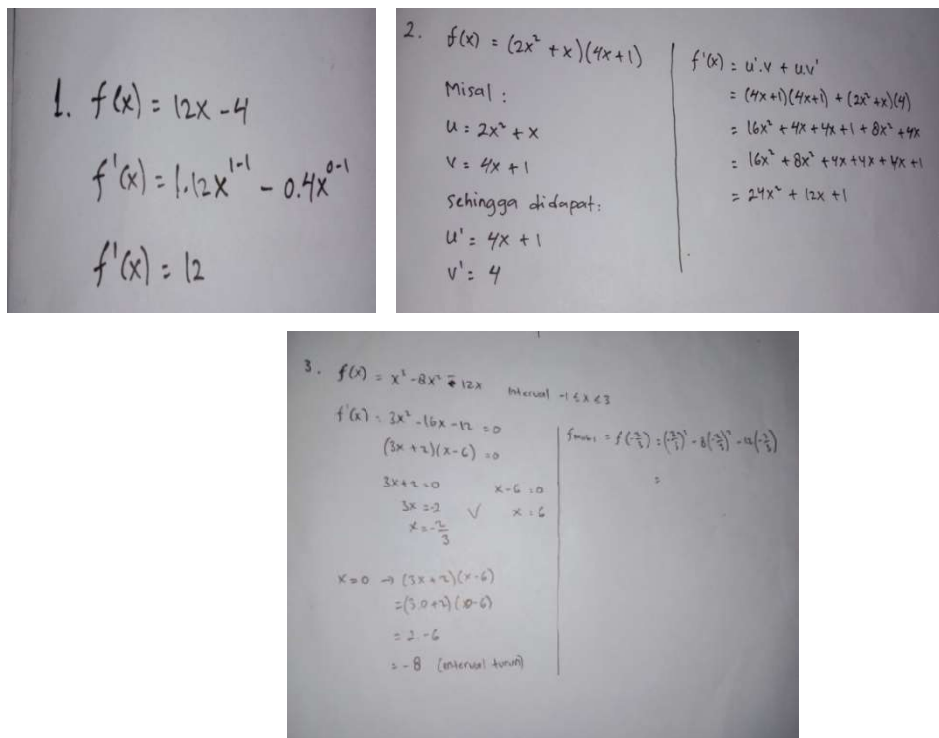 1. f(x) = 12x - 4
f'(x) = 1.12x^{1-1} - 0.4x^{0-1}
f'(x) = 12
2. f(x) = (2x² + x)(4x+1)
Misal :
u = 2x² + x
v = 4x + 1
sehingga didapat:
u' = 4x + 1
v' = 4
f'(x) = u'.v + u.v'
= (4x+1)(4x+1) + (2x²+x)(4)
= 16x² + 4x + 4x + 1 + 8x² + 4x
= 16x² + 8x² + 4x + 4x + 4x + 1
= 24x² + 12x + 1
3. f(x) = x³ - 8x² - 12x interval -1 ≤ x ≤ 3
f'(x) = 3x² - 16x - 12 = 0
(3x + 2)(x - 6) = 0
3x + 2 = 0 x - 6 = 0
3x = -2 V x = 6
x = -2/3
x = 0 → (3x + 2)(x - 6)
= (3.0 + 2)(0 - 6)
= 2 - 6
= - 8 (interval turun)
f maks = f(-2/3) = (-2/3)³ - 8(-2/3)² - 12(-2/3)
=